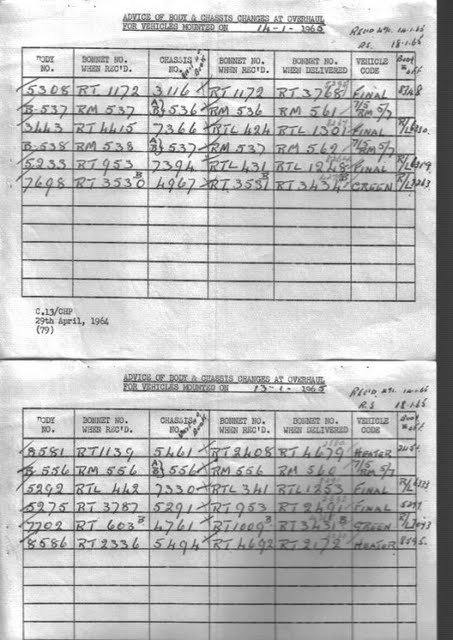 ADVICE OF BODY & CHASSIS CHANGES AT OVERHAUL
FOR VEHICLES MOUNTED ON 14-1- 1965
18.1.65
BODY NO. BONNET NO. WHEN REC'D. CHASSIS NO. BONNET NO. WHEN REC'D. BONNET NO. WHEN DELIVERED VEHICLE CODE
5308 RT 1172 3116 RT 1172 RT 3768 FINAL
B-537 RM 537 536 RM 536 RM 561 7/5 RM 5/7
3443 RT 4415 7366 RTL 424 RTL 1301 FINAL
B-538 RM 538 537 RM 537 RM 562 7/5 RM 5/7
5233 RT 953 7394 RTL 431 RTL 1248 FINAL
7698 RT 3530 B 4967 RT 3581 RT 3434 B GREEN
C.13/CHP
29th April, 1964
(79)
ADVICE OF BODY & CHASSIS CHANGES AT OVERHAUL
FOR VEHICLES MOUNTED ON 13-1- 1965
18.1.65
BODY NO. BONNET NO. WHEN REC'D. CHASSIS NO. BONNET NO. WHEN REC'D. BONNET NO. WHEN DELIVERED VEHICLE CODE
8581 RT 1139 5461 RT 2408 RT 4679 HEATER
B-556 RM 556 556 RM 556 RM 560 7/5 RM 5/7
5292 RTL 442 7330 RTL 341 RTL 1253 FINAL
5275 RT 3787 5291 RT 953 RT 2491 FINAL
7702 RT 603 B 4761 RT 1009 B RT 3431 B GREEN
8586 RT 2336 5494 RT 4692 RT 2172 HEATER